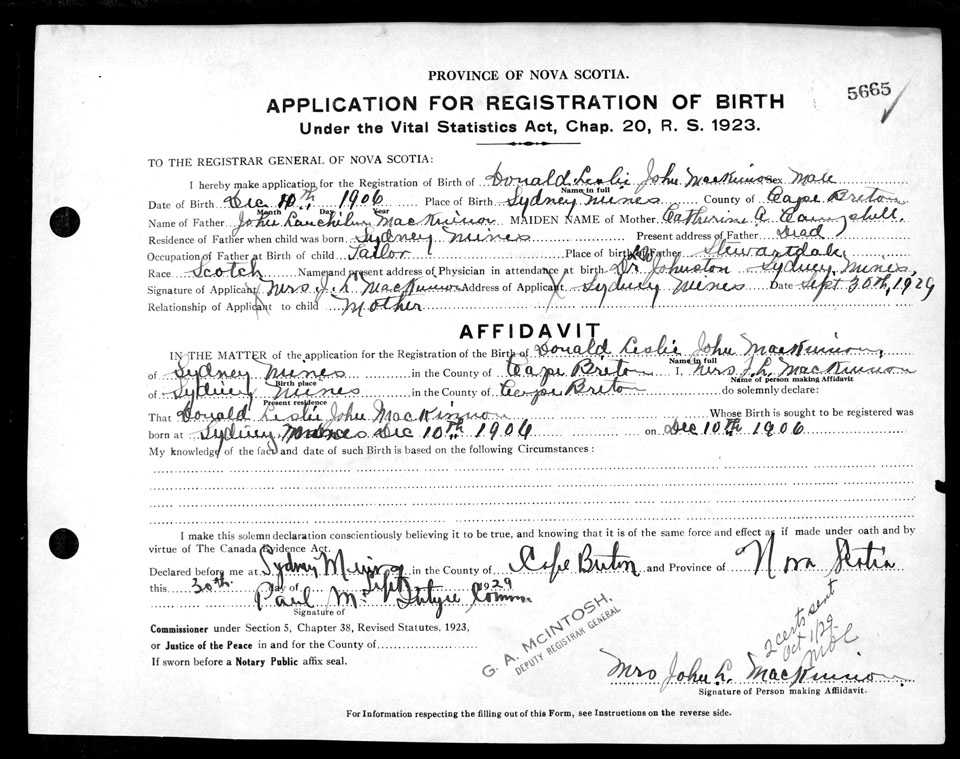 PROVINCE OF NOVA SCOTIA.
5665
APPLICATION FOR REGISTRATION OF BIRTH
Under the Vital Statistics Act, Chap. 20, R. S. 1923.
TO THE REGISTRAR GENERAL OF NOVA SCOTIA:
I hereby make application for the Registration of Birth of Donald Leslie John MacKinnon Sex Male
Name in full
Date of Birth Dec 10th 1906 Place of Birth Sydney Mines County of Cape Breton
Month Day Year
Name of Father John Lauchlin MacKinnon MAIDEN NAME of Mother Catherine A. Campbell.
Residence of Father when child was born Sydney Mines Present address of Father Dead
Occupation of Father at Birth of child Tailor Place of birth of Father Stewartdale
Race Scotch Name and present address of Physician in attendance at birth Dr. Johnston Sydney Mines,
Signature of Applicant Mrs. J. L. MacKinnon Address of Applicant Sydney Mines Date Sept 30th, 1929
Relationship of Applicant to child Mother
AFFIDAVIT
IN THE MATTER of the application for the Registration of the Birth of Donald Leslie John MacKinnon,
Name in full
of Sydney Mines in the County of Cape Breton I, Mrs J. L. MacKinnon
Birth place Name of person making Affidavit
of Sydney Mines in the County of Cape Breton do solemnly declare:
Present residence
That Donald Leslie John MacKinnon Whose Birth is sought to be registered was
born at Sydney Mines Dec 10th 1906 on Dec 10th 1906
My knowledge of the fact and date of such Birth is based on the following Circumstances:
I make this solemn declaration conscientiously believing it to be true, and knowing that it is of the same force and effect as if made under oath and by
virtue of The Canada Evidence Act.
Declared before me at Sydney Mines in the County of Cape Breton and Province of Nova Scotia
this 30th day of Sept 1929
Paul McIntyre Comm
Signature of
Commissioner under Section 5, Chapter 38, Revised Statutes, 1923,
or Justice of the Peace in and for the County of
If sworn before a Notary Public affix seal.
G. A. MCINTOSH,
DEPUTY REGISTRAR GENERAL
2 certs sent
Oct 1/29
Mrs John L. MacKinnon
Signature of Person making Affidavit.
For Information respecting the filling out of this Form, see Instructions on the reverse side.